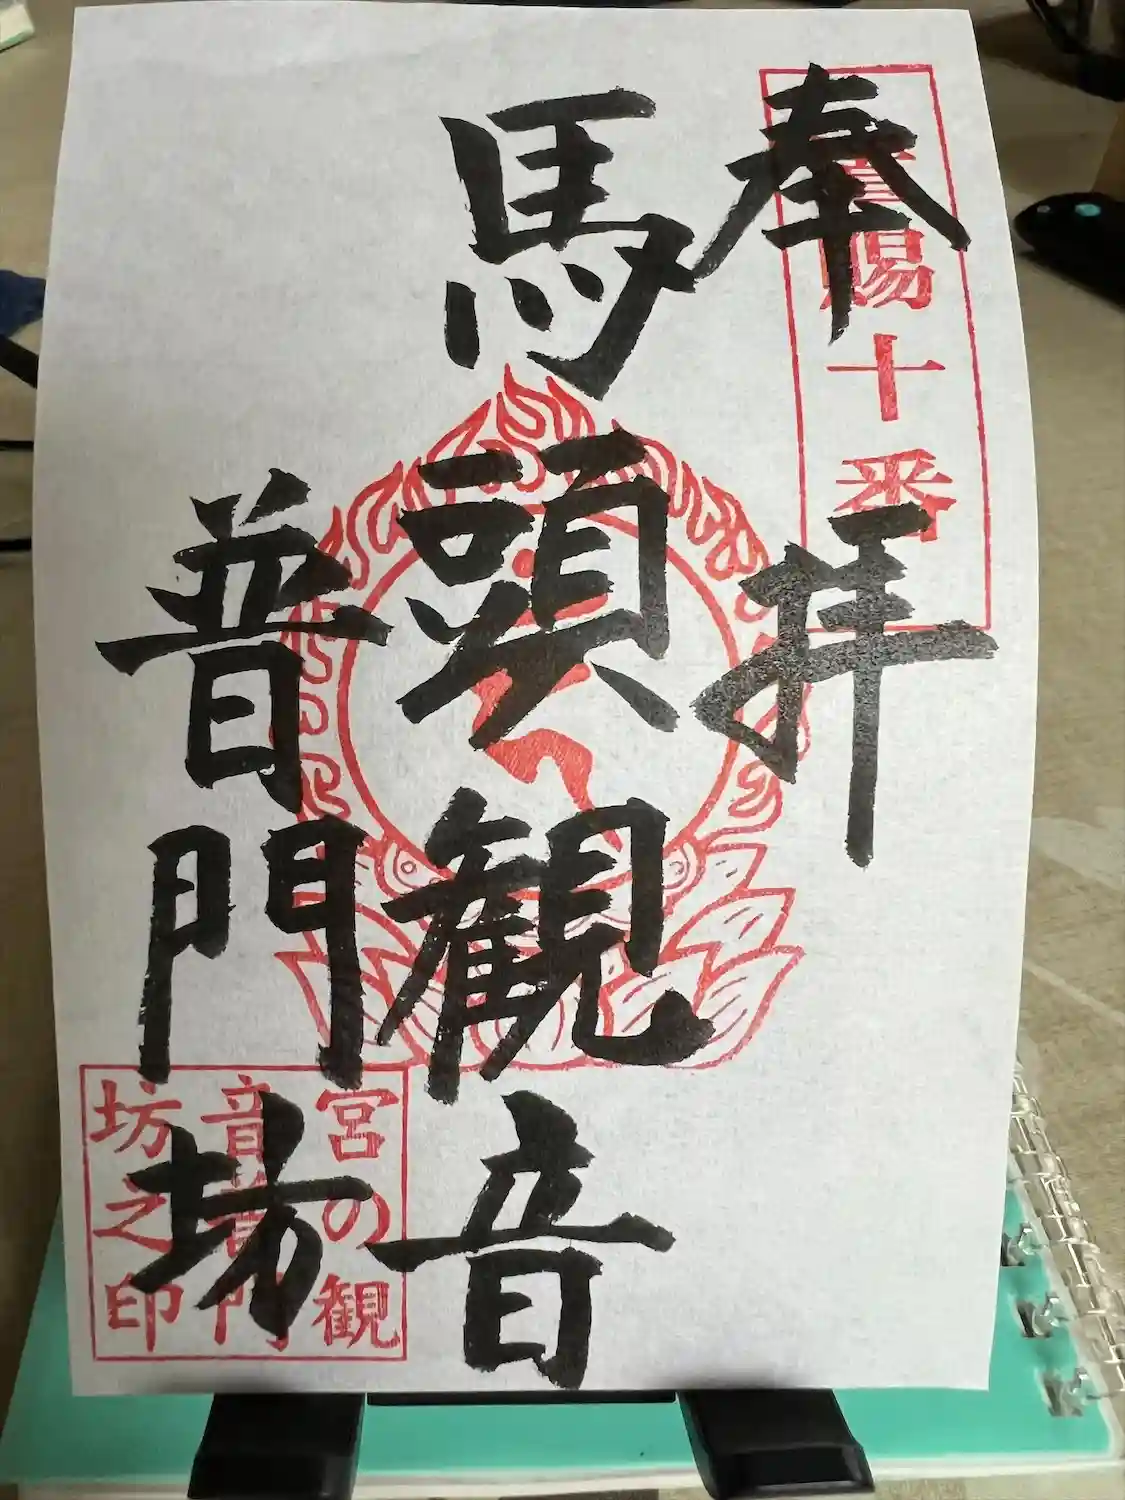 奉拝
賜十番
馬頭観音
普門坊
宮の観
音普門
坊之印